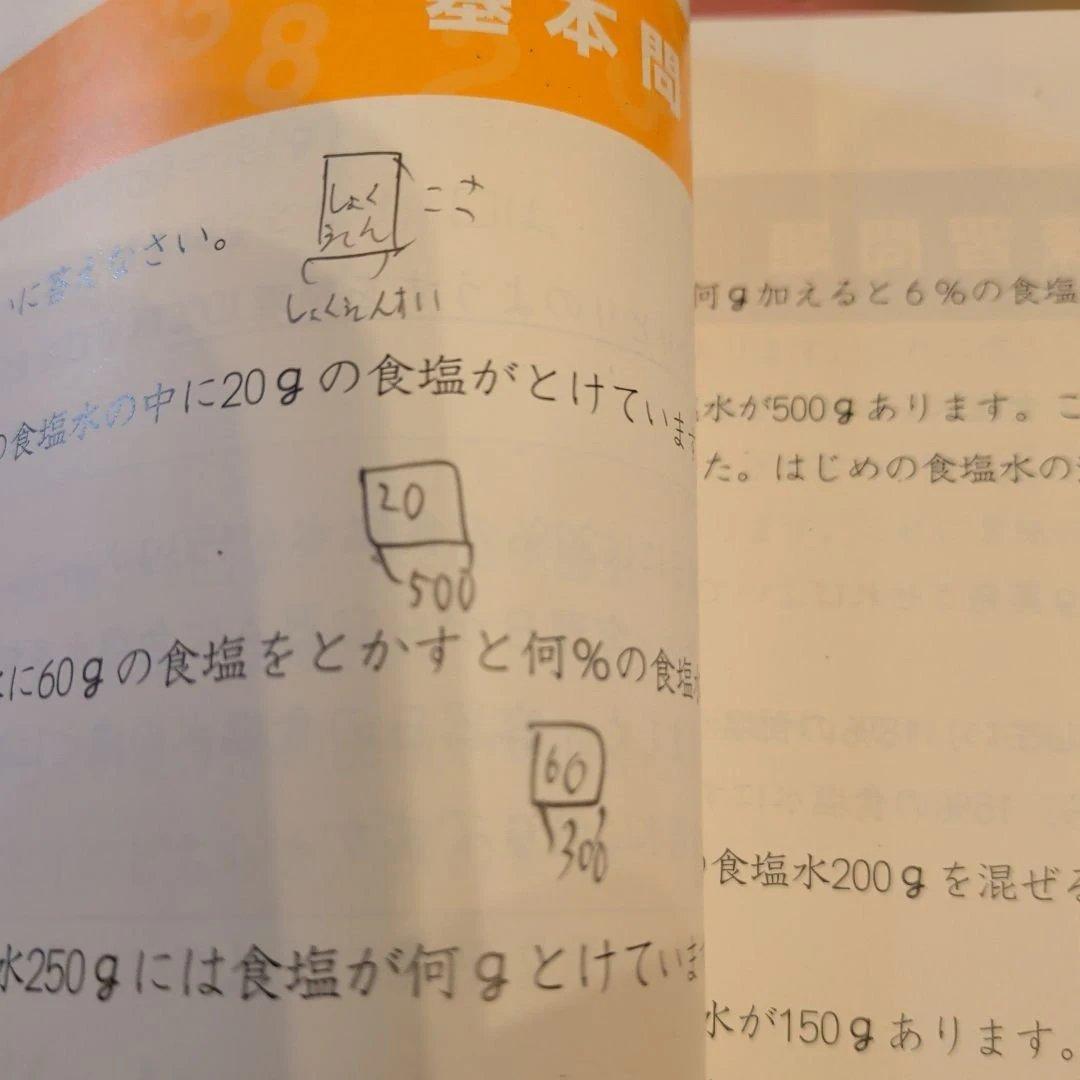 基本問
しょく
えん
こさ
いに答えなさい。
しょくえんすい
の食塩水の中に20gの食塩がとけています
20
500
水に60gの食塩をとかすと何%の食塩水
60
300
水250gには食塩が何gとけていま
習問
何g加えると6%の食塩
水が500gあります。こ
た。はじめの食塩水の
の食塩水200gを混ぜる
水が150gあります。